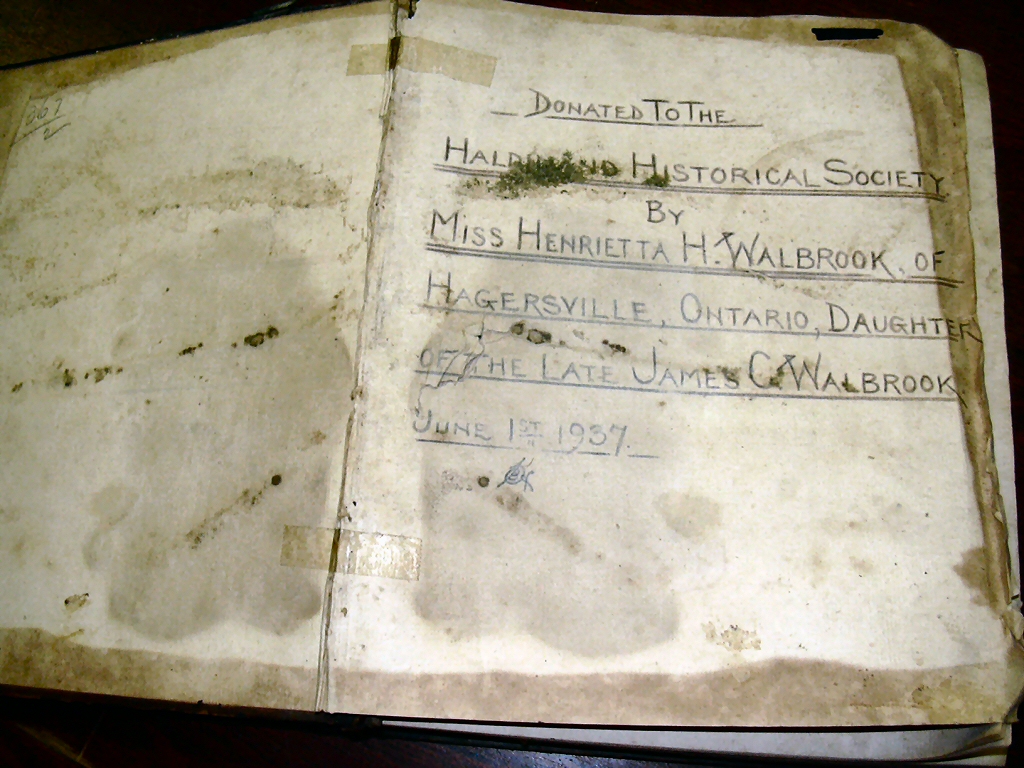 DONATED TO THE
HALDIMAND HISTORICAL SOCIETY
BY
MISS HENRIETTA H. WALBROOK, OF
HAGERSVILLE, ONTARIO, DAUGHTER
OF THE LATE JAMES C. WALBROOK
JUNE 1ST 1937.